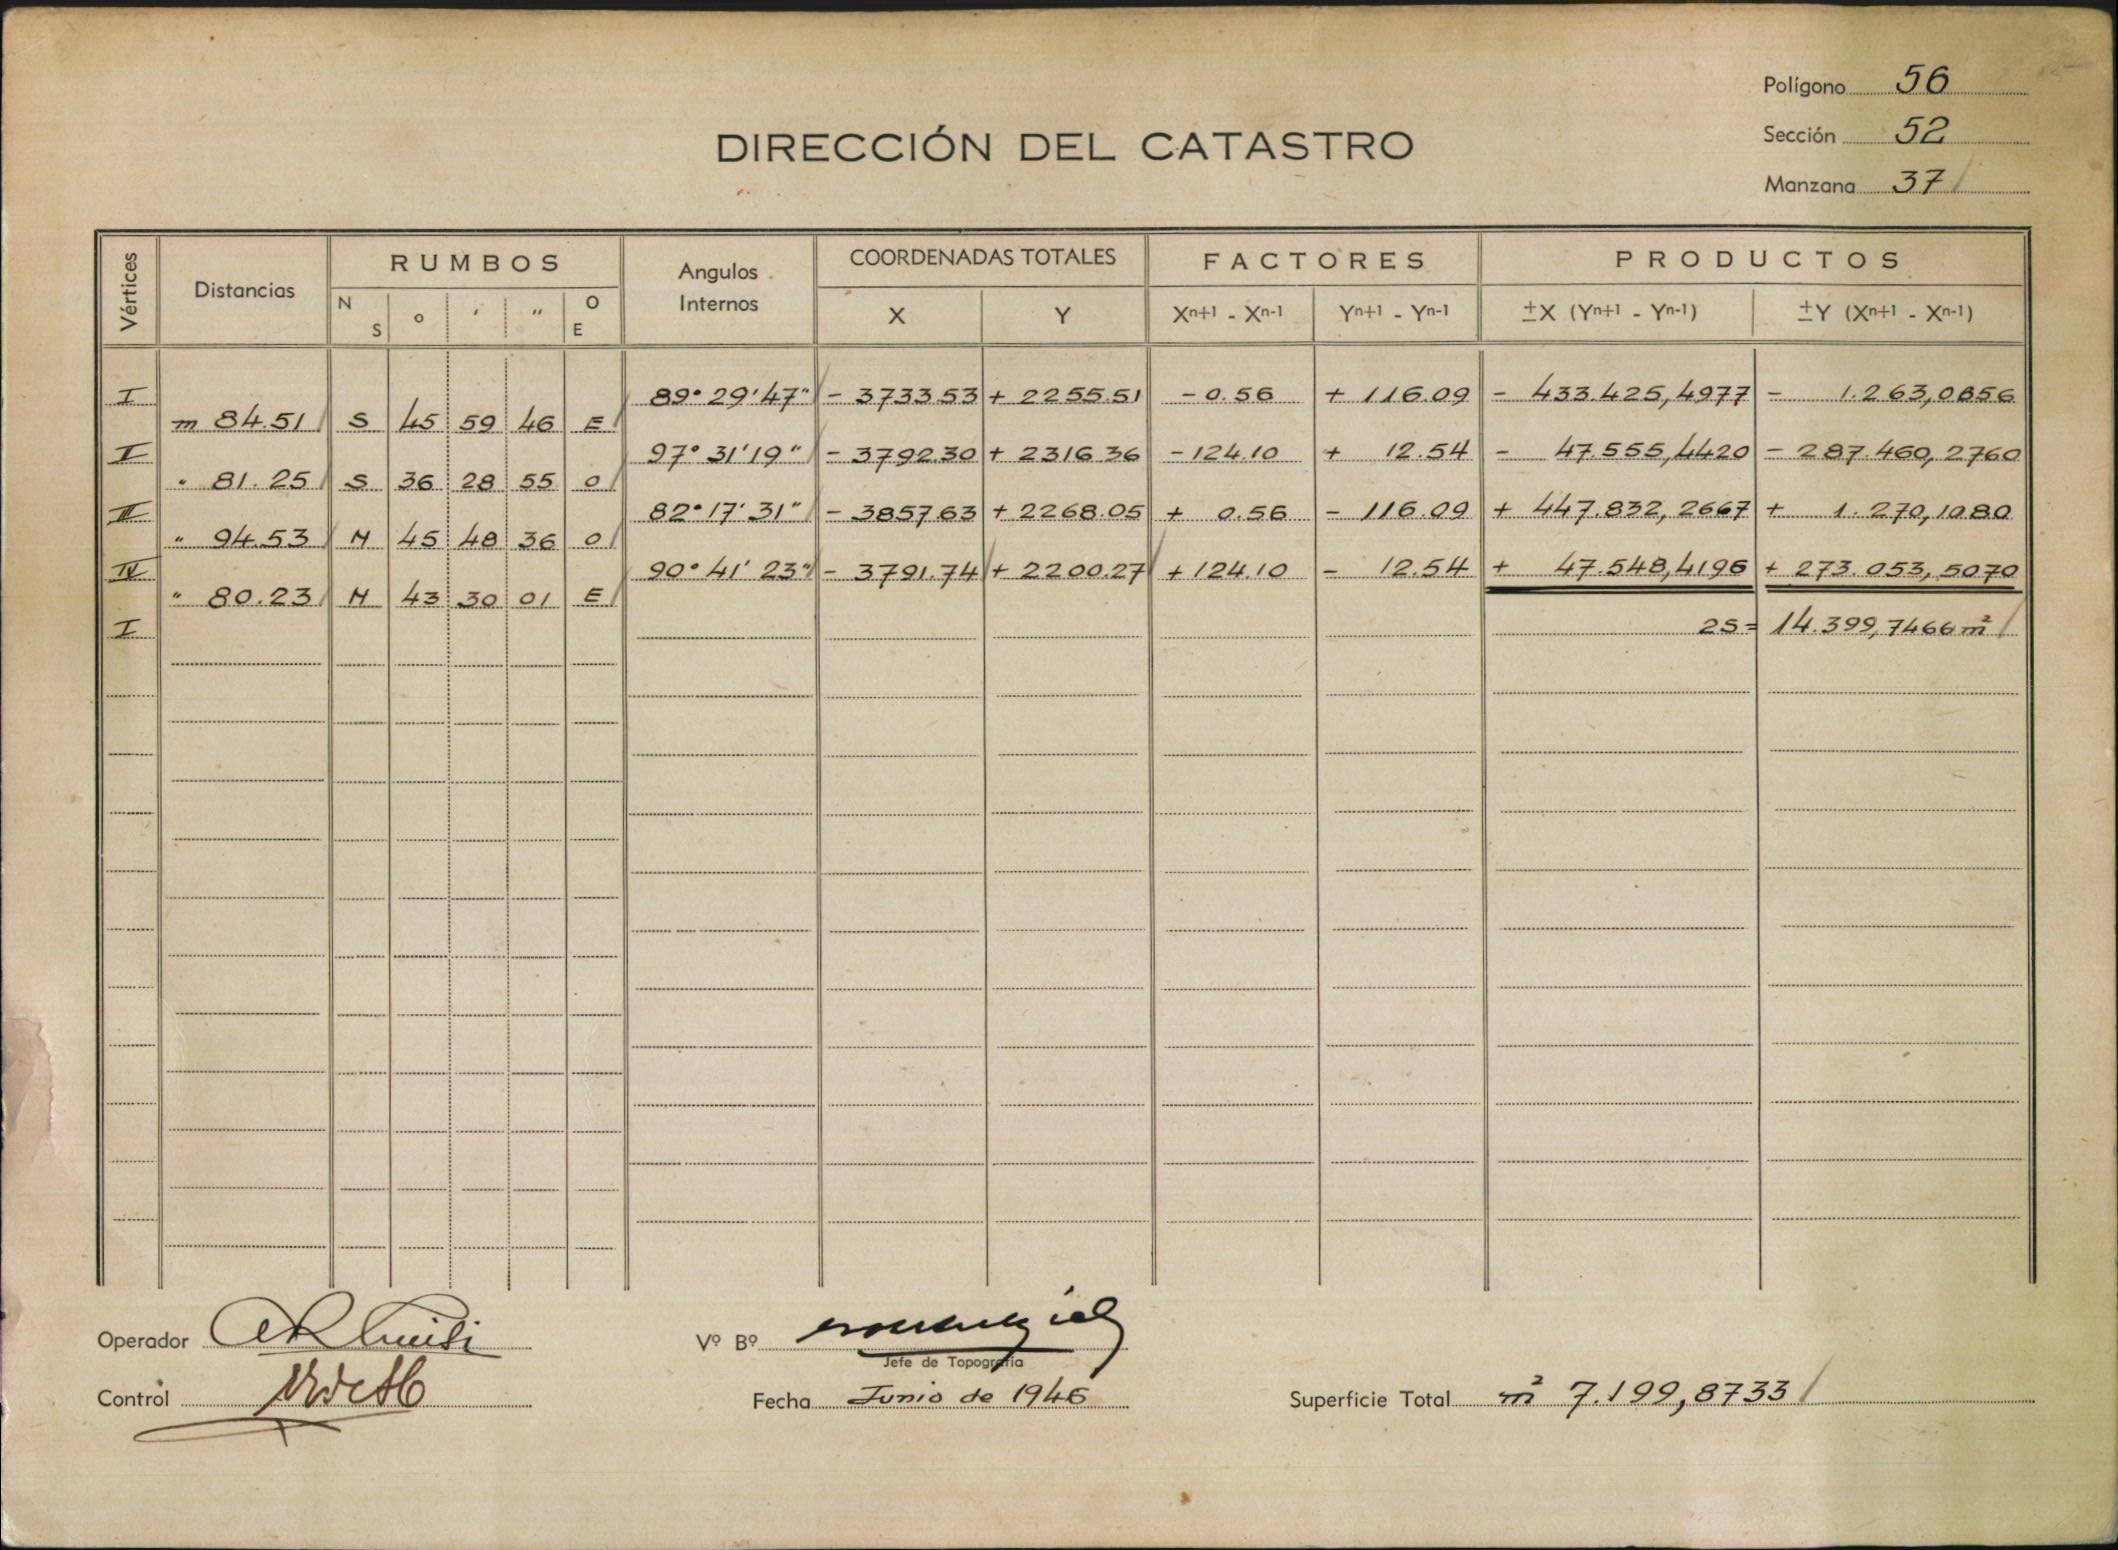 Polígono 56
Sección 52
Manzana 37
DIRECCIÓN DEL CATASTRO
Vértices Distancias RUMBOS Angulos Internos COORDENADAS TOTALES FACTORES PRODUCTOS
N S o ' " O E X Y Xn+1 - Xn-1 Yn+1 - Yn-1 ±X (Yn+1 - Yn-1) ±Y (Xn+1 - Xn-1)
I 89° 29' 47" - 3733.53 + 2255.51 - 0.56 + 116.09 - 433.425,4977 - 1.263,0856
m 84.51 S 45 59 46 E
II 97° 31' 19" - 3792.30 + 2316.36 - 124.10 + 12.54 - 47.555,4420 - 287.460,2760
" 81.25 S 36 28 55 O
III 82° 17' 31" - 3857.63 + 2268.05 + 0.56 - 116.09 + 447.832,2667 + 1.270,1080
" 94.53 N 45 48 36 O
IV 90° 41' 23" - 3791.74 + 2200.27 + 124.10 - 12.54 + 47.548,4196 + 273.053,5070
" 80.23 N 43 30 01 E
I 2S = 14.399,7466 m²
Operador
Vº Bº
Jefe de Topografía
Control
Fecha Junio de 1946
Superficie Total m² 7.199,8733